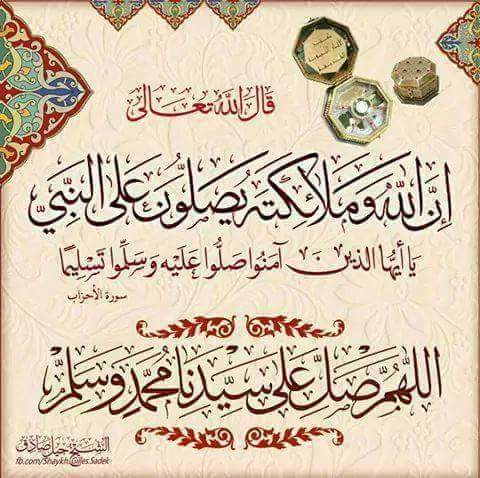 قال الله تعالى
إن الله وملائكته يصلون على النبي
يا أيها الذين آمنوا صلوا عليه وسلموا تسليما
سورة الأحزاب
اللهم صل على سيدنا محمد وسلم
الشيخ جيل صادق
fb.com/Shaykh.Gilles.Sadek